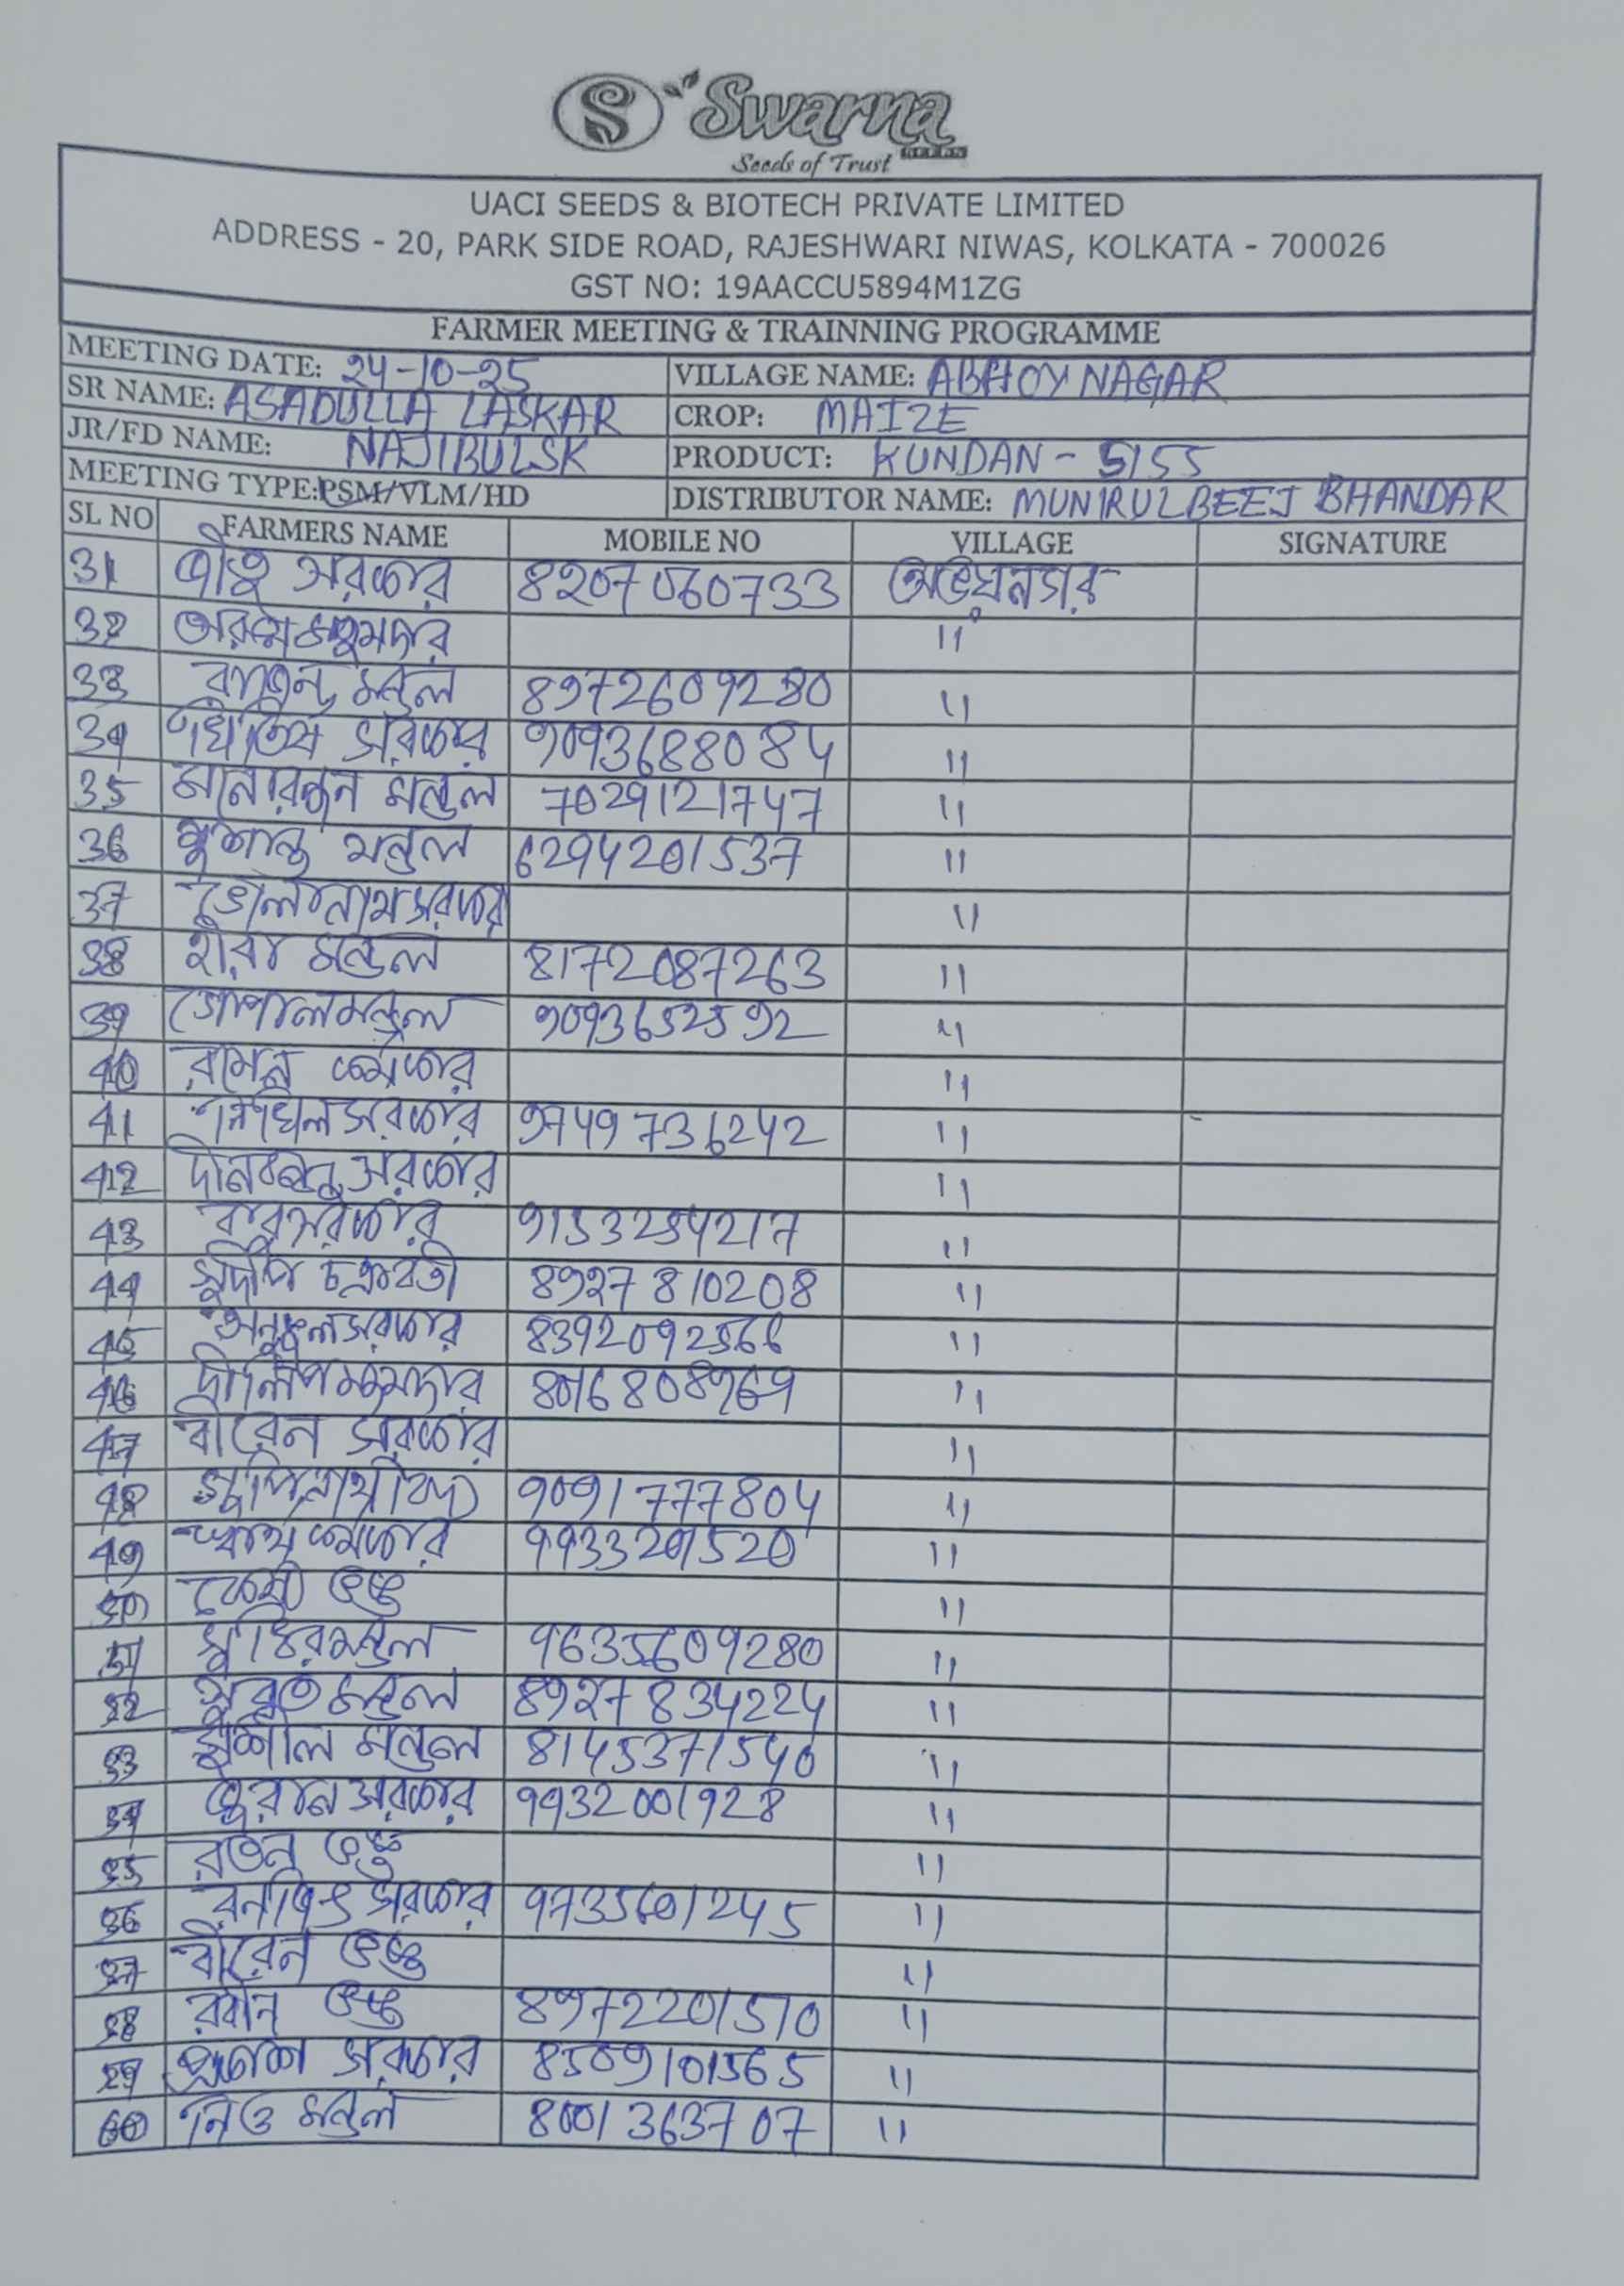 Swarna
SEEDS
Seeds of Trust
UACI SEEDS & BIOTECH PRIVATE LIMITED
ADDRESS - 20, PARK SIDE ROAD, RAJESHWARI NIWAS, KOLKATA - 700026
GST NO: 19AACCU5894M1ZG
FARMER MEETING & TRAINNING PROGRAMME
MEETING DATE: 24-10-25 VILLAGE NAME: ABHOY NAGAR
SR NAME: ASADULLA LASKAR CROP: MAIZE
JR/FD NAME: NAJIBUL SK PRODUCT: KUNDAN - 5155
MEETING TYPE: PSM/VLM/HD DISTRIBUTOR NAME: MUNIRUL BEEJ BHANDAR
SL NO FARMERS NAME MOBILE NO VILLAGE SIGNATURE
31 সরকার 8207060733 অভয়নগর
32 "
33 মন্ডল 8972609280 "
34 সরকার 9093688084 "
35 মনোরঞ্জন মন্ডল 7029121747 "
36 সুশান্ত মন্ডল 6294201537 "
37 ভোলানাথ সরকার "
38 হীরা মন্ডল 8172087263 "
39 গোপাল মন্ডল 9093652592 "
40 রমেন কর্মকার "
41 নিখিল সরকার 9749736242 "
42 দীনবন্ধু সরকার "
43 সরকার 9153254217 "
44 সুদীপ চক্রবর্তী 8927810208 "
45 অনুকুল সরকার 8392092566 "
46 দীলিপ মজুমদার "
47 বীরেন সরকার "
48 9091777804 "
49 কর্মকার 9933201520 "
50 "
51 সুধির মন্ডল 9635609280 "
52 সুব্রত মন্ডল 8927834224 "
53 সুশীল মন্ডল 8145371540 "
54 সরকার 9932001928 "
55 রতন "
56 রনজিৎ সরকার 9735601245 "
57 বীরেন "
58 রবীন 8972201570 "
59 প্রকাশ সরকার 8509101565 "
60 মন্ডল 8001363707 "